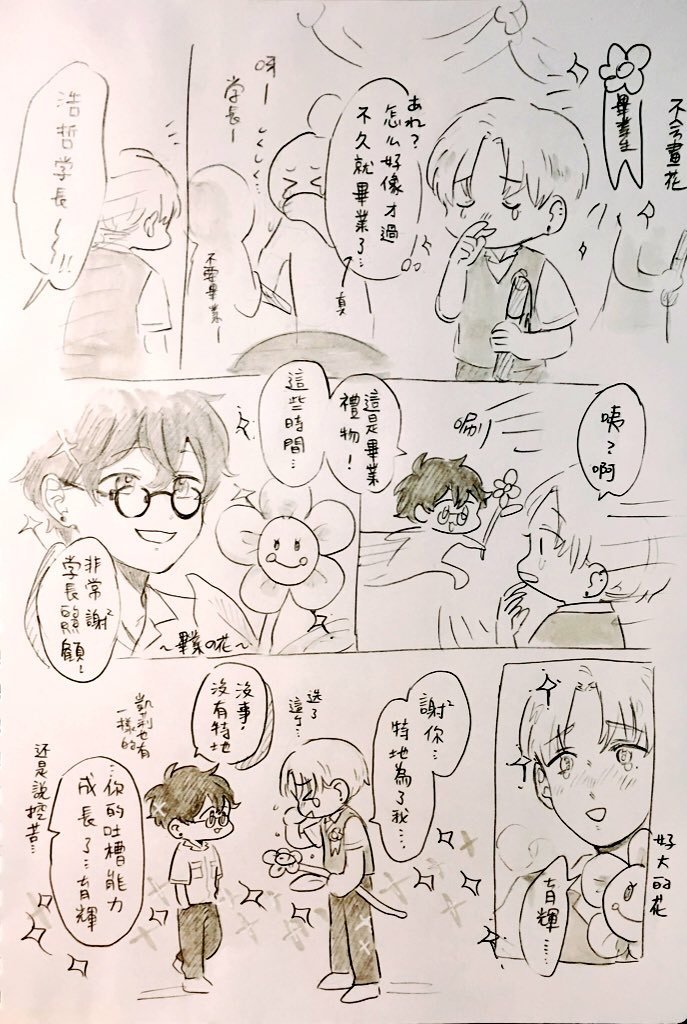 不会畫花
畢業生
あれ?
怎么好像才過
不久就畢業了…
呀ー
学長ー
しくしく…
不要畢業ー
真
浩哲学長~~!!
咦?啊
唰
這是畢業
禮物!
這些時間…
非常謝²
学長照顧!
~畢業の花~
好大的花
育輝……
謝²你…
特地為了我…
选了
這个…
没事,
沒有特地
凱利也有
一樣的
…你的吐槽能力
成長了…育輝
还是說挖苦…